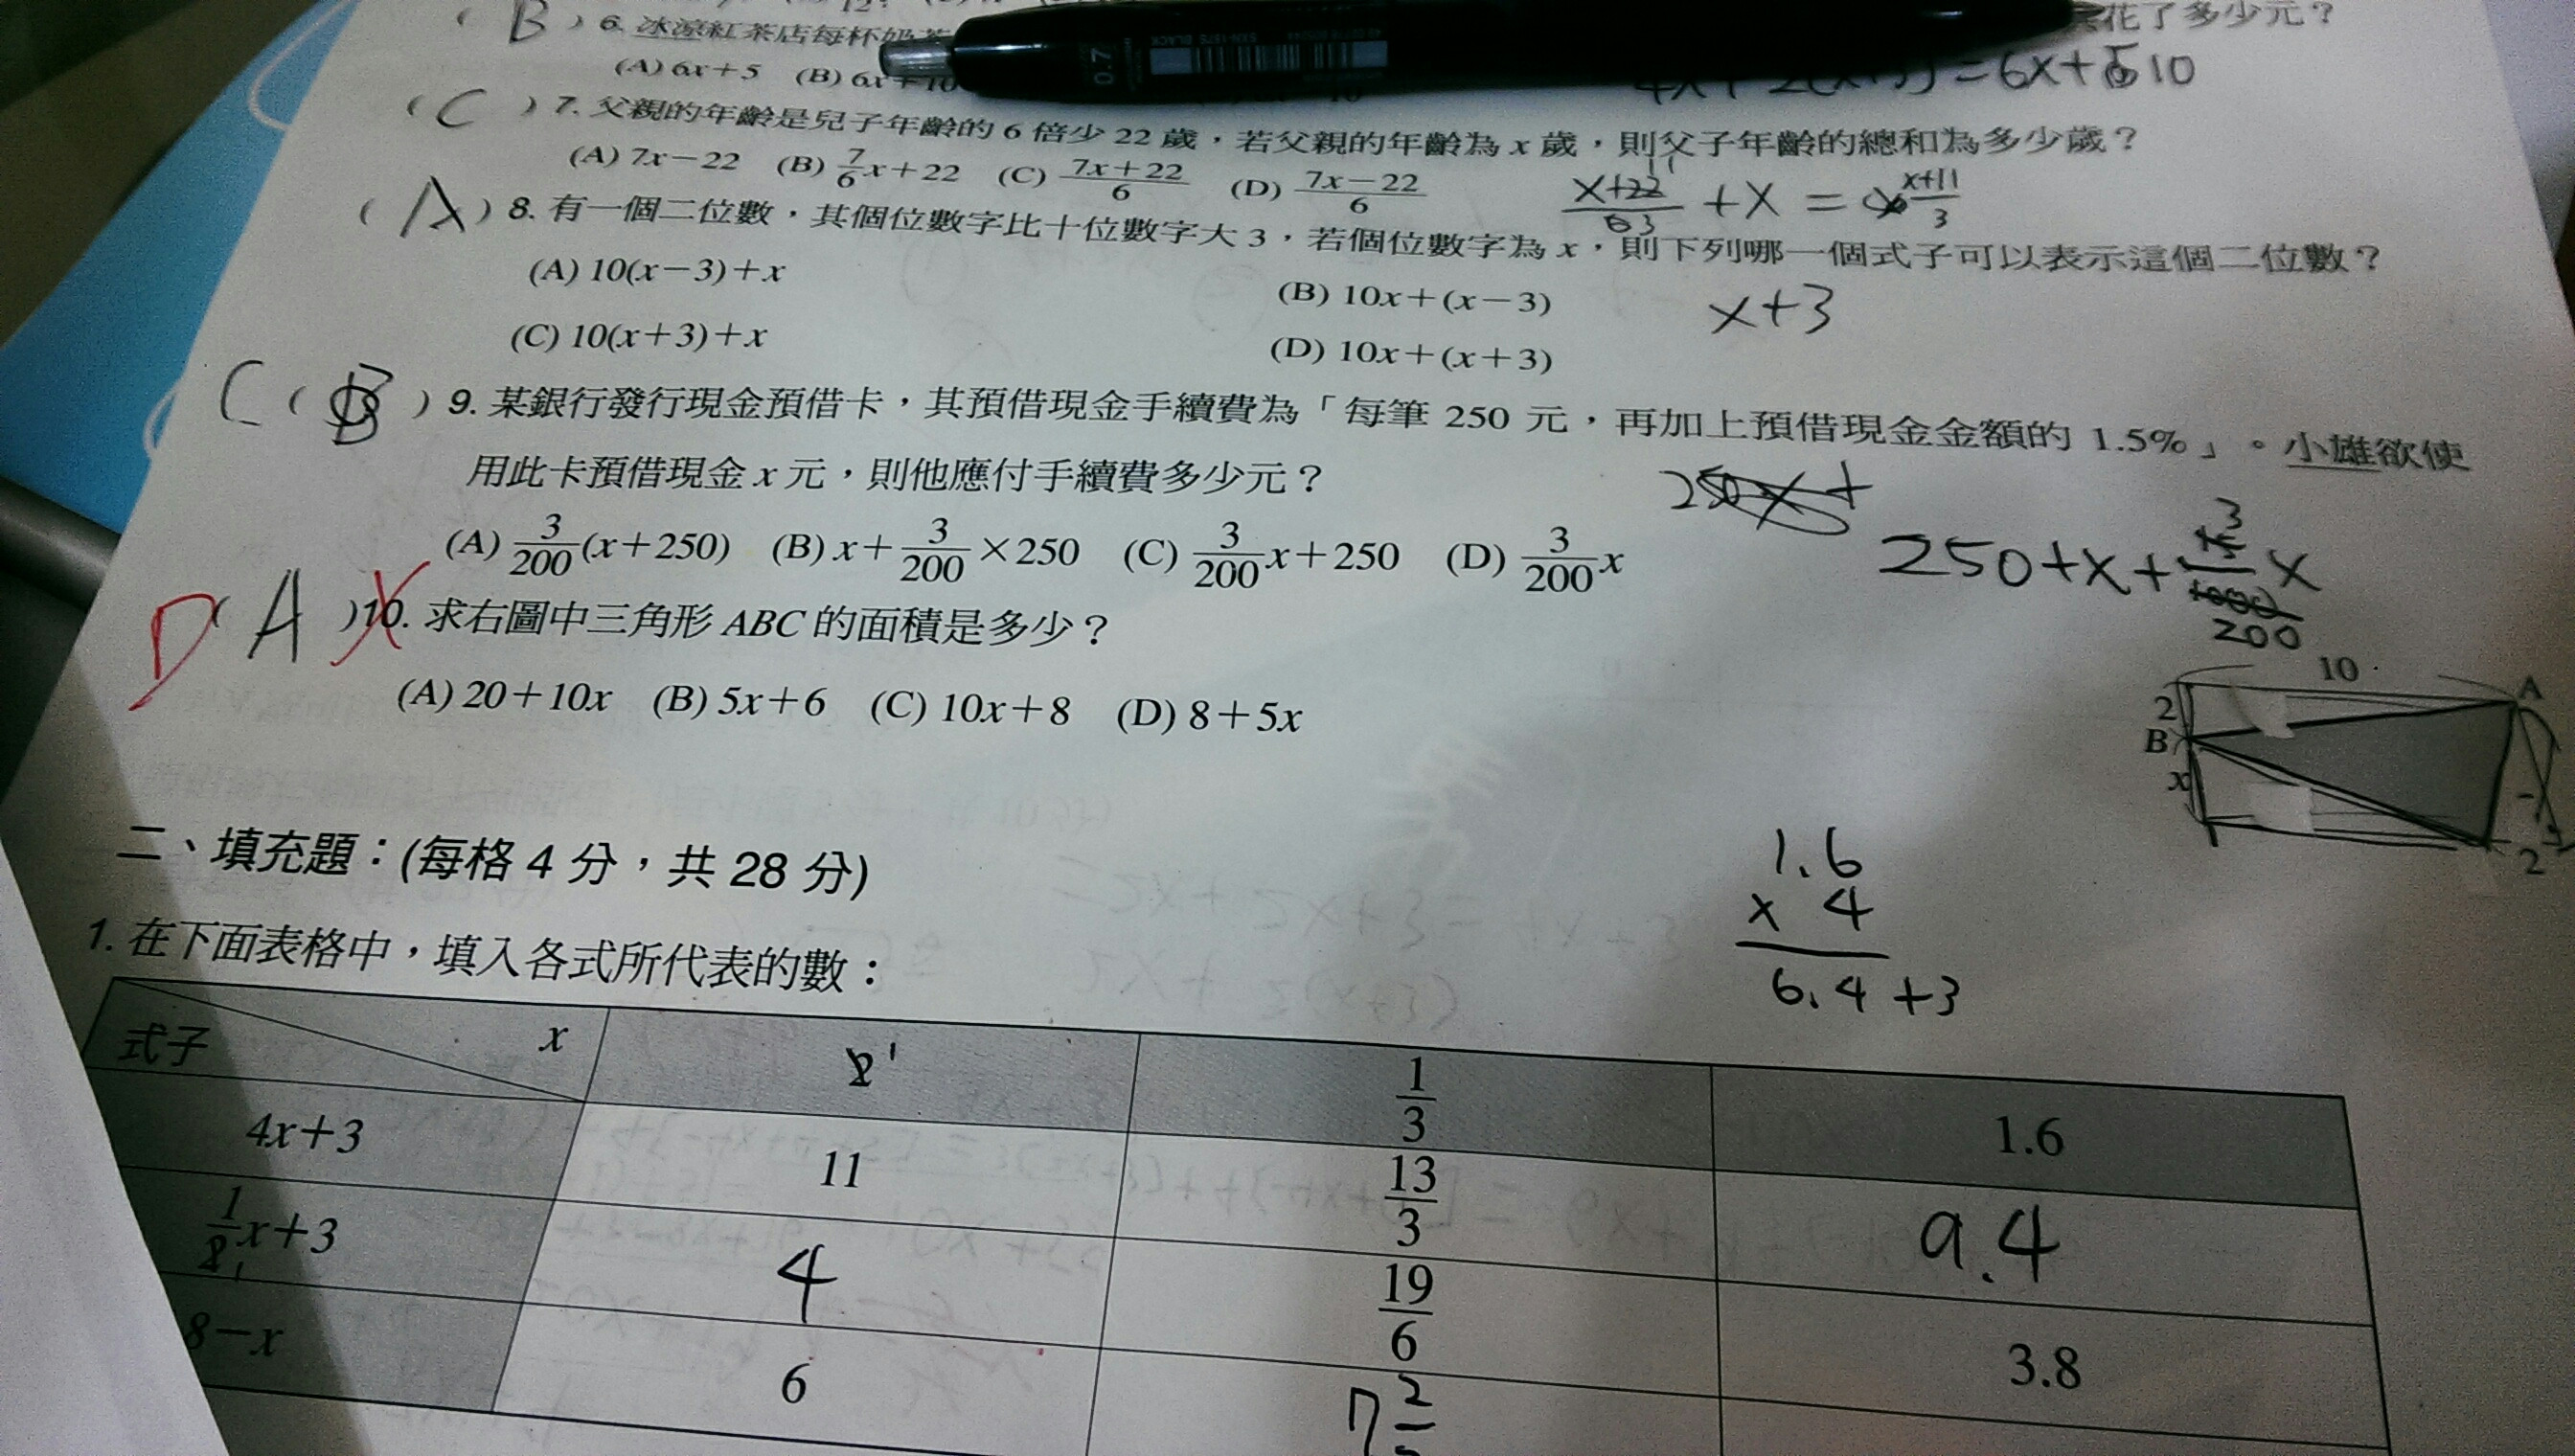 ( B ) 6. 冰涼紅茶店每杯奶茶 花了多少元？
(A) 6x+5 (B) 6x+10
=6x+10
( C ) 7. 父親的年齡是兒子年齡的 6 倍少 22 歲，若父親的年齡為 x 歲，則父子年齡的總和為多少歲？
(A) 7x－22 (B) 7/6 x＋22 (C) (7x＋22)/6 (D) (7x－22)/6
+x = (x+11)/3
( A ) 8. 有一個二位數，其個位數字比十位數字大 3，若個位數字為 x，則下列哪一個式子可以表示這個二位數？
(A) 10(x－3)＋x (B) 10x＋(x－3)
x+3
(C) 10(x＋3)＋x (D) 10x＋(x＋3)
C ( B ) 9. 某銀行發行現金預借卡，其預借現金手續費為「每筆 250 元，再加上預借現金金額的 1.5%」。小雄欲使
用此卡預借現金 x 元，則他應付手續費多少元？
250x+
(A) 3/200 (x＋250) (B) x＋3/200×250 (C) 3/200 x＋250 (D) 3/200 x
250+x+ 3/200 x
D ( A ) 10. 求右圖中三角形 ABC 的面積是多少？
(A) 20＋10x (B) 5x＋6 (C) 10x＋8 (D) 8＋5x
10
A
2
B
x
2
二、填充題：(每格 4 分，共 28 分)
1.6
x 4
6.4+3
1. 在下面表格中，填入各式所代表的數：
式子 x 2 1/3 1.6
4x＋3 11 13/3 9.4
1/2 x＋3 4 19/6 3.8
8－x 6